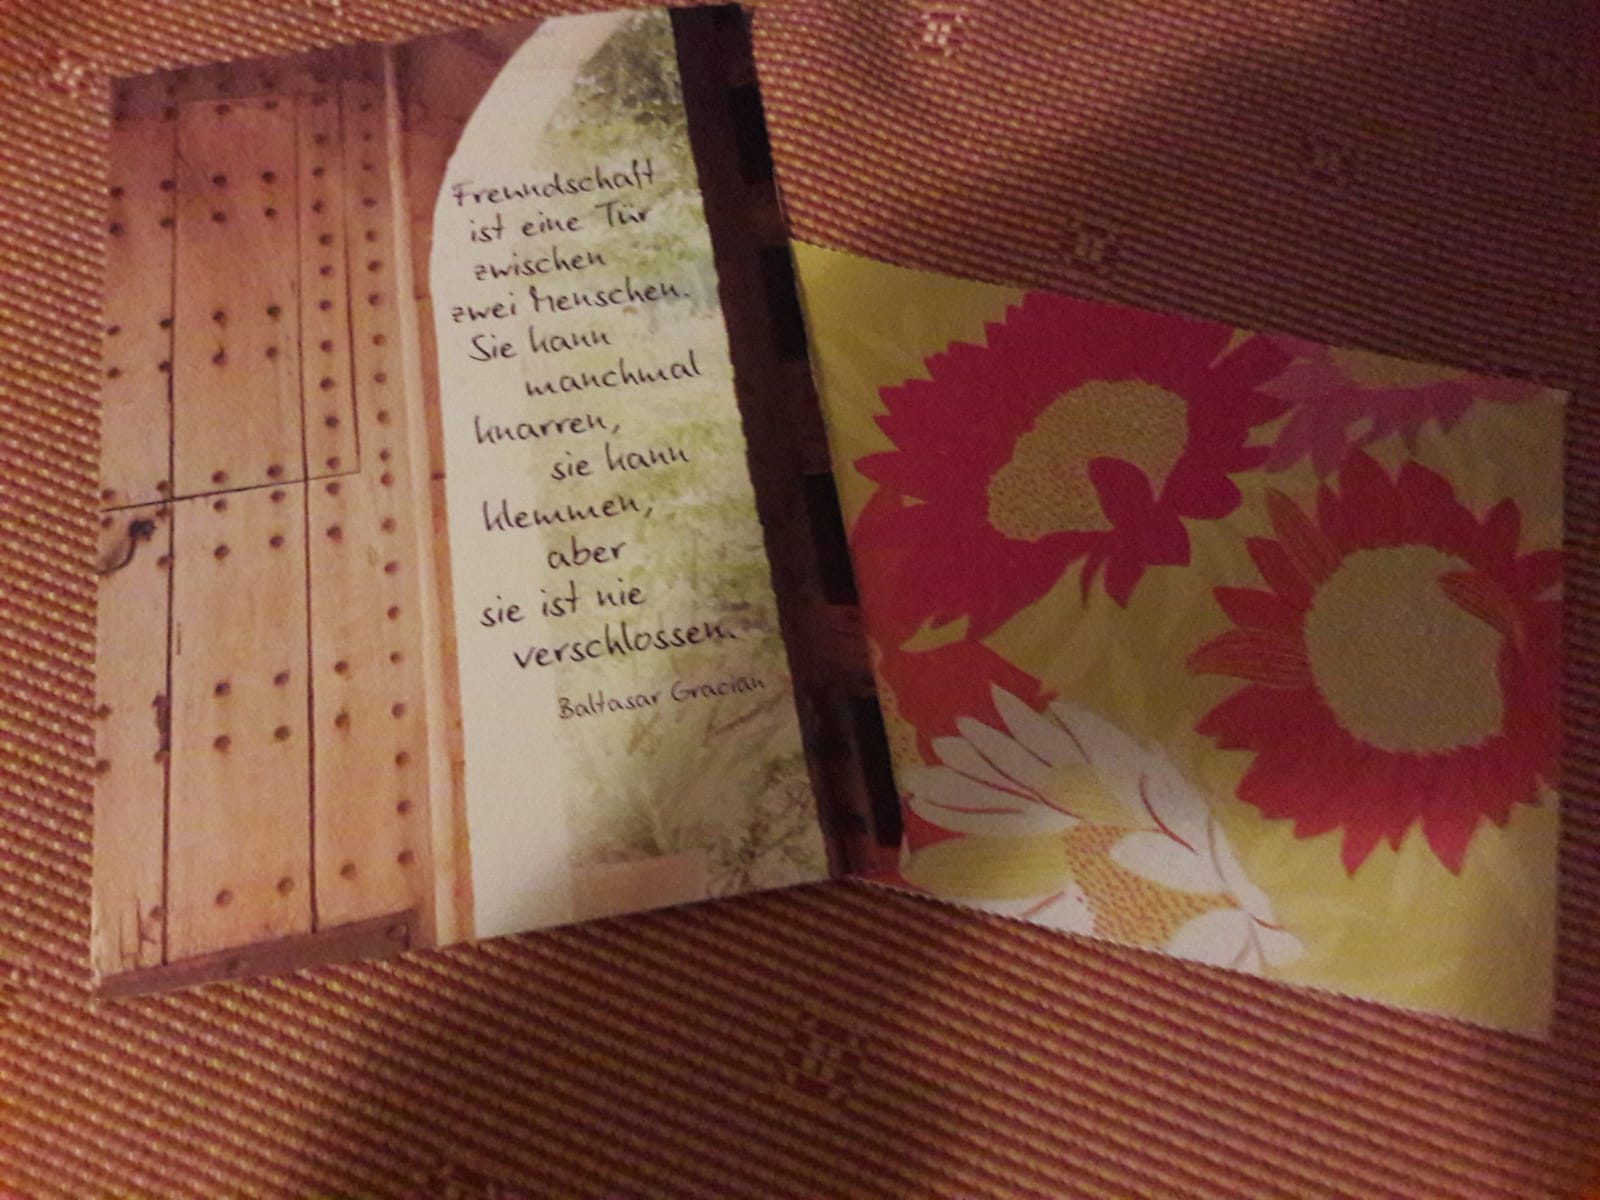 Freundschaft
ist eine Tür
zwischen
zwei Menschen.
Sie kann
manchmal
knarren,
sie kann
klemmen,
aber
sie ist nie
verschlossen.
Baltasar Gracian